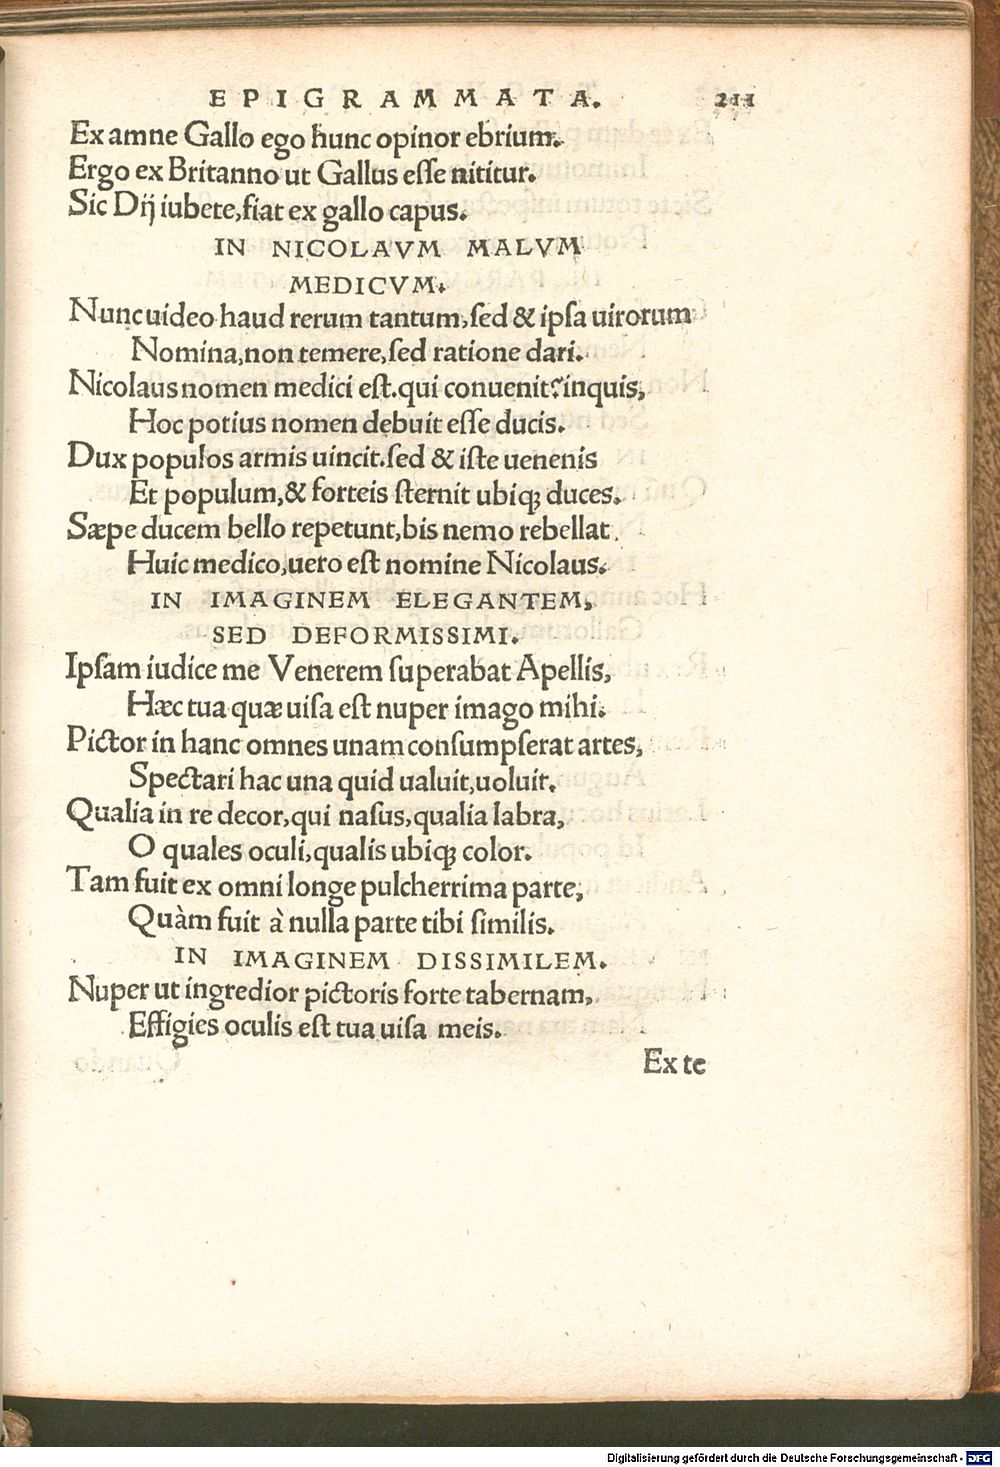 EPIGRAMMATA. 211
Ex amne Gallo ego hunc opinor ebrium.
Ergo ex Britanno ut Gallus eſſe nititur.
Sic Dij iubete, fiat ex gallo capus.
IN NICOLAVM MALVM
MEDICVM.
Nunc uideo haud rerum tantum, ſed & ipſa uirorum
Nomina, non temere, ſed ratione dari.
Nicolaus nomen medici eſt. qui conuenit? inquis,
Hoc potius nomen debuit eſſe ducis.
Dux populos armis uincit. ſed & iſte uenenis
Et populum, & forteis ſternit ubiqꝫ duces.
Sæpe ducem bello repetunt, bis nemo rebellat
Huic medico, uero eſt nomine Nicolaus.
IN IMAGINEM ELEGANTEM,
SED DEFORMISSIMI.
Ipſam iudice me Venerem ſuperabat Apellis,
Hæc tua quæ uiſa eſt nuper imago mihi.
Pictor in hanc omnes unam conſumpſerat artes,
Spectari hac una quid ualuit, uoluit.
Qualia in re decor, qui naſus, qualia labra,
O quales oculi, qualis ubiqꝫ color.
Tam fuit ex omni longe pulcherrima parte,
Quàm fuit à nulla parte tibi ſimilis.
IN IMAGINEM DISSIMILEM.
Nuper ut ingredior pictoris forte tabernam,
Effigies oculis eſt tua uiſa meis.
Ex te
Digitalisierung gefördert durch die Deutsche Forschungsgemeinschaft - DFG